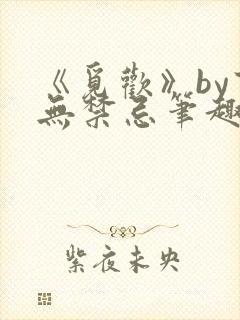 《覓歡》by
無禁忌筆趣
紫夜未央